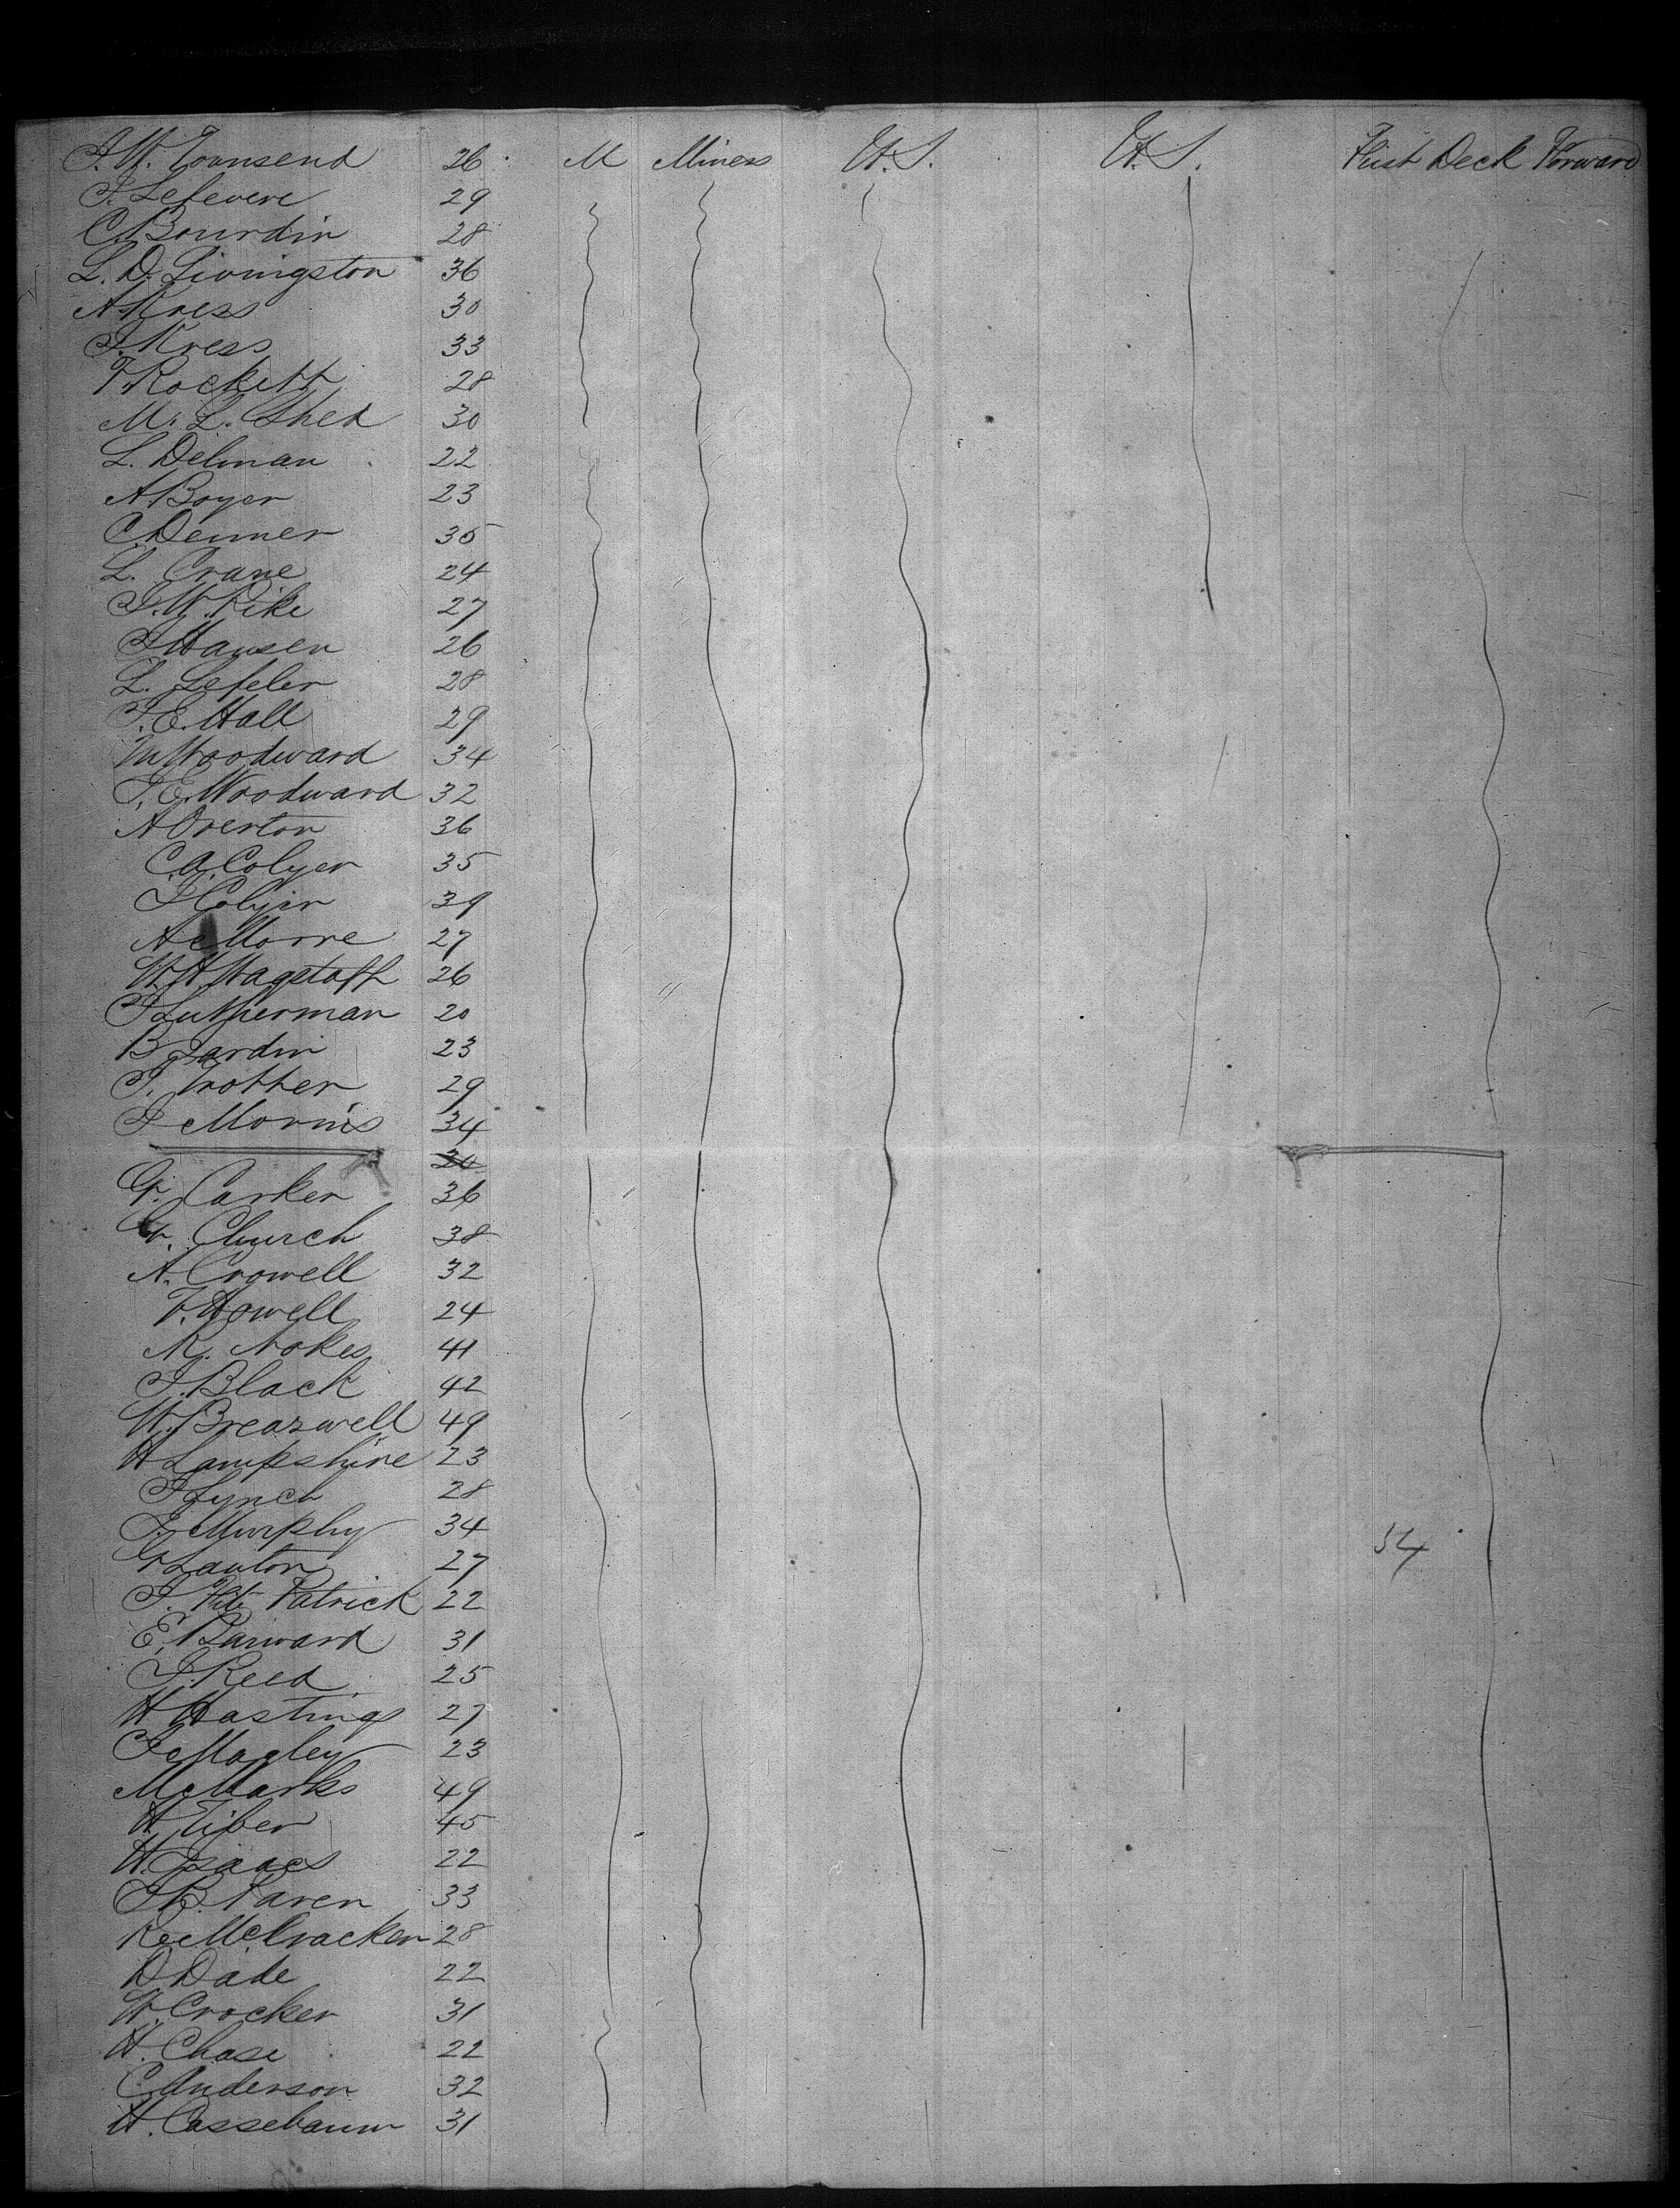 J. W. Townsend 26 M Miners U. S. U. S. First Deck Forward
J. Lefevere 29
C. Bourdin 28
L. D. Livingston 36
A Kress 30
J. Kress 33
T. Rockett 28
M. L. Shed 30
L. Delman 22
A Boyer 23
C. Denner 35
L. Crane 24
J. W. Pike 27
J Hansen 26
L. Lefeler 28
J. E. Hall 29
M Woodward 34
J. E. Woodward 32
A Overton 36
C. A. Colyer 35
J Colyer 39
A Morre 27
W. H. Wagstaff 26
J Lutherman 20
B Jardin 23
J. Trotter 29
J Morris 34
30
G. Carker 36
G. Church 38
A. Crowell 32
F. Howell 24
M. Nokes 41
J. Black 42
W. Breazwell 49
H Lampshire 23
J Lynch 28
J. Murphy 34
G Lawton 27
54
J. Fitz Patrick 22
E. Barward 31
J. Reed 25
H Hastings 27
J Magley 23
M Marks 49
H. Tifer 45
H. Isaacs 22
J. B. Paren 33
R McCracken 28
D Dade 22
W. Crocker 31
H. Chase 22
C. Anderson 32
H. Cassebaum 31